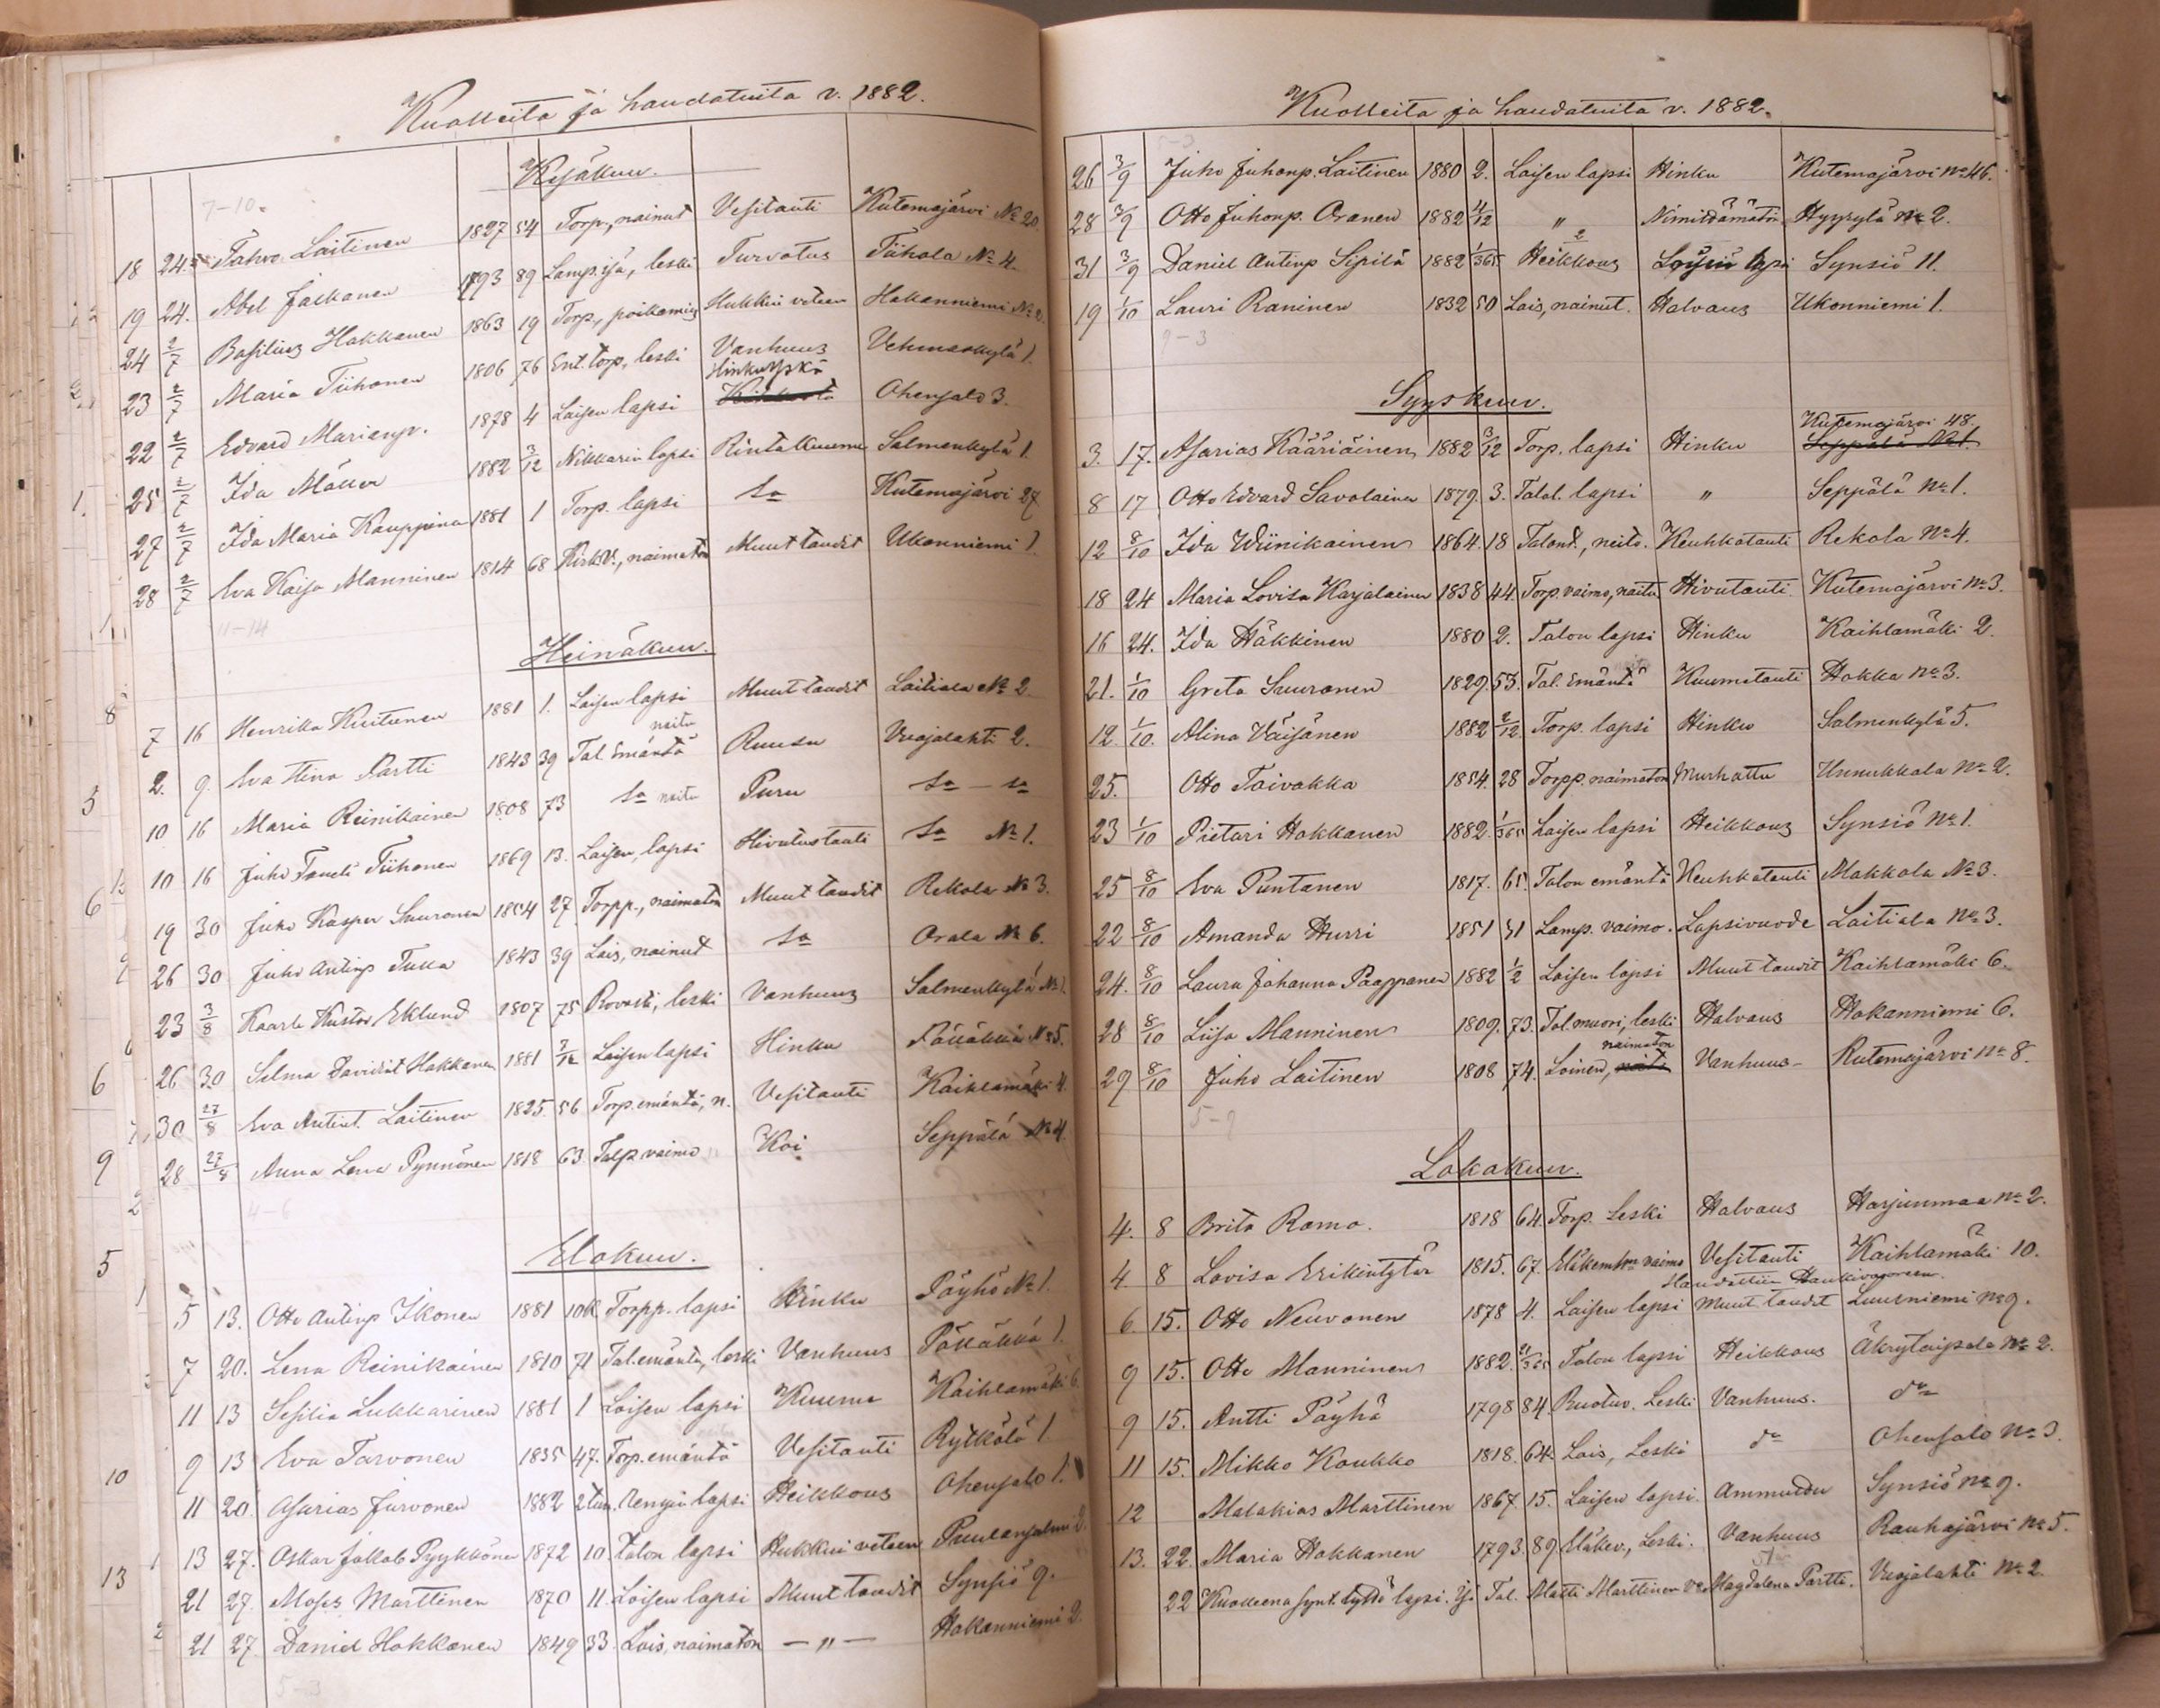 Kuolleita ja haudatuita v. 1882.
Kesäkuu.
7-10.
18 24. Tahvo Laitinen 1827 54 Torp., nainut Vesitauti Kutemajärvi № 20.
19 24. Abel Jalkanen 1793 89 Lamp. isä, leski Turvotus Tiihola № 4.
24 2/7 Basilius Hokkanen 1863 19 Torp., poikamies Hukkui veteen Hokanniemi № 2.
23 2/7 Maria Tiihonen 1806 76 Ent. torp., leski Vanhuus Vehmaskylä 1.
Hinkuyskä
22 2/7 Edvard Marianp. 1878 4 Loisen lapsi Ohensalo 3.
25 2/7 Ida Möller 1882 3/12 Nikkarin lapsi Rintakuume Salmenkylä 1.
27 2/7 Ida Maria Kauppinen 1881 1 Torp. lapsi Sa Kutemajärvi 27
28 2/7 Eva Kaisa Manninen 1814 68 Kirkv., naimaton Muut taudit Ukonniemi 1.
11-14
Heinäkuu.
7 16 Henrikka Kuitunen 1881 1. Loisen lapsi Muut taudit Laitiala № 2
naitu
2. 9. Eva Stina Partti 1843 39 Tal. Emäntä Ruusu Vuojalahti 2.
10 16 Maria Reinikainen 1808 73 Sa naitu Puru Sa - Sa
10 16 Juho Taneli Tiihonen 1869 13. Loisen, lapsi Hivutustauti Sa № 1.
19 30 Juho Kasper Suuronen 1854 27 Torpp., naimaton Muut taudit Rekola № 3.
26 30 Juho Antinp Tukia 1843 39 Lois, nainut Sa Orala № 6.
23 3/8 Kaarle Kustov Eklund 1807 75 Rovasti, leski Vanhuus Salmenkylä № 1.
26 30 Selma Davidint Hokkanen 1881 7/12 Loisen lapsi Hinku Pölläkkä № 5.
30 27/8 Eva Antint. Laitinen 1825 56 Torp. emäntä, n. Vesitauti Kaihlamäki 4.
28 27/8 Anna Lena Pynnönen 1818 63. Talp vaimo Koi Seppälä № 4
4-6
Elokuu.
5 13. Otto Antinp Ikonen 1881 10k Torpp. lapsi Hinku Pöyhö № 1.
7 20. Lena Reinikainen 1810 71 Tal. emäntä, leski Vanhuus Pölläkkä 1.
11 13 Sesilia Lukkarinen 1881 1 Loisen lapsi Kuume Kaihlamäki 6.
9 13 Eva Tarvonen 1835 47. Torp. emäntä Vesitauti Rytkölä 1
11 20. Asarias Jurvonen 1882 2 tun. Rengin lapsi Heikkous Ohensalo 1.
13 27. Oskar Jakob Pyykkönen 1872 10 Talon lapsi Hukkui veteen Puulansalmi 2.
21 27. Moses Marttinen 1870 11. Loisen lapsi Muut taudit Synsiö 9.
21 27. Daniel Hokkanen 1849 33. Lois, naimaton - " - Hokanniemi 2.
5-3
Kuolleita ja haudatuita v. 1882.
26 3/9 Juho Juhonp. Laitinen 1880 2. Loisen lapsi Hinku Kutemajärvi № 46.
28 3/9 Otto Juhonp. Oranen 1882 4/12 " Nimittämätön Hyyrylä № 2.
31 3/9 Daniel Antinp Sipilä 1882 1/365 Heikkous Loisen lapsi Synsiö 11.
19 1/10 Lauri Raninen 1832 50 Lois, nainut. Halvaus Ukonniemi 1.
9-3
Syyskuu.
Kutemajärvi 48.
3. 17. Asarias Kääriäinen 1882 3/12 Torp. lapsi Hinku Seppälä № 1.
8 17 Otto Edvard Savolainen 1879. 3. Talol. lapsi " Seppälä № 1.
12 8/10 Ida Wiinikainen 1864. 18 Talont., neito. Keuhkotauti Rekola № 4.
18 24 Maria Lovisa Karjalainen 1838 44. Torp. vaimo, naitu Hivutauti Kutemajärvi № 3.
16 24. Ida Häkkinen 1880 2. Talon lapsi Hinku Kaihlamäki 2.
naitu
21. 1/10 Greta Suuronen 1829. 53. Tal. Emäntä Kuumetauti Hokka № 3.
12. 1/10. Alina Väisänen 1882 2/12 Torp. lapsi Hinku Salmenkylä 5.
25. Otto Toivakka 1854. 28 Torpp. naimaton Murhattu Unnukkala № 2.
23 1/10 Pietari Hokkanen 1882. 1/365 Loisen lapsi Heikkous Synsiö № 1.
25 8/10 Eva Puntanen 1817. 65. Talon emäntä Keuhkotauti Makkola № 3.
22 8/10 Amanda Hurri 1851 31 Lamp. vaimo. Lapsivuode Laitiala № 3.
24. 8/10 Laura Johanna Paappanen 1882 1/2 Loisen lapsi Muut taudit Kaihlamäki 6.
28 8/10 Liisa Manninen 1809. 73. Tal. muori, leski Halvaus Hokanniemi 6.
naimaton
29 8/10 Juho Laitinen 1808 74. Loinen, naitu Vanhuus - Kutemajärvi № 8.
5-9
Lokakuu.
4. 8 Brita Romo. 1818 64. Torp. Leski Halvaus Harjunmaa № 2.
4. 8 Lovisa Erikintytär 1815. 67. Vesitauti Kaihlamäki 10.
Haudattiin Haukivuoreen.
6. 15. Otto Neuvonen 1878 4. Loisen lapsi Muut taudit Luusniemi № 9.
9 15. Otto Manninen 1882. 21/365 Talon lapsi Heikkous Äkrytaipale № 2.
9 15. Antti Pöyhä 1798 84. Ruotuv. Leski Vanhuus. do
11 15. Mikko Koukko 1818. 64. Lois, Leski do Ohensalo № 3.
12 Malakias Marttinen 1867. 15. Loisen lapsi. Ammuttu Synsiö № 9.
13. 22. Maria Hokkanen 1793. 89. Eläkev., Leski. Vanhuus Rauhajärvi № 5.
22 Kuolleena synt. tyttö lapsi. Isä Tal. Matti Marttinen v° Magdalena Partti. Vuojalahti № 2.